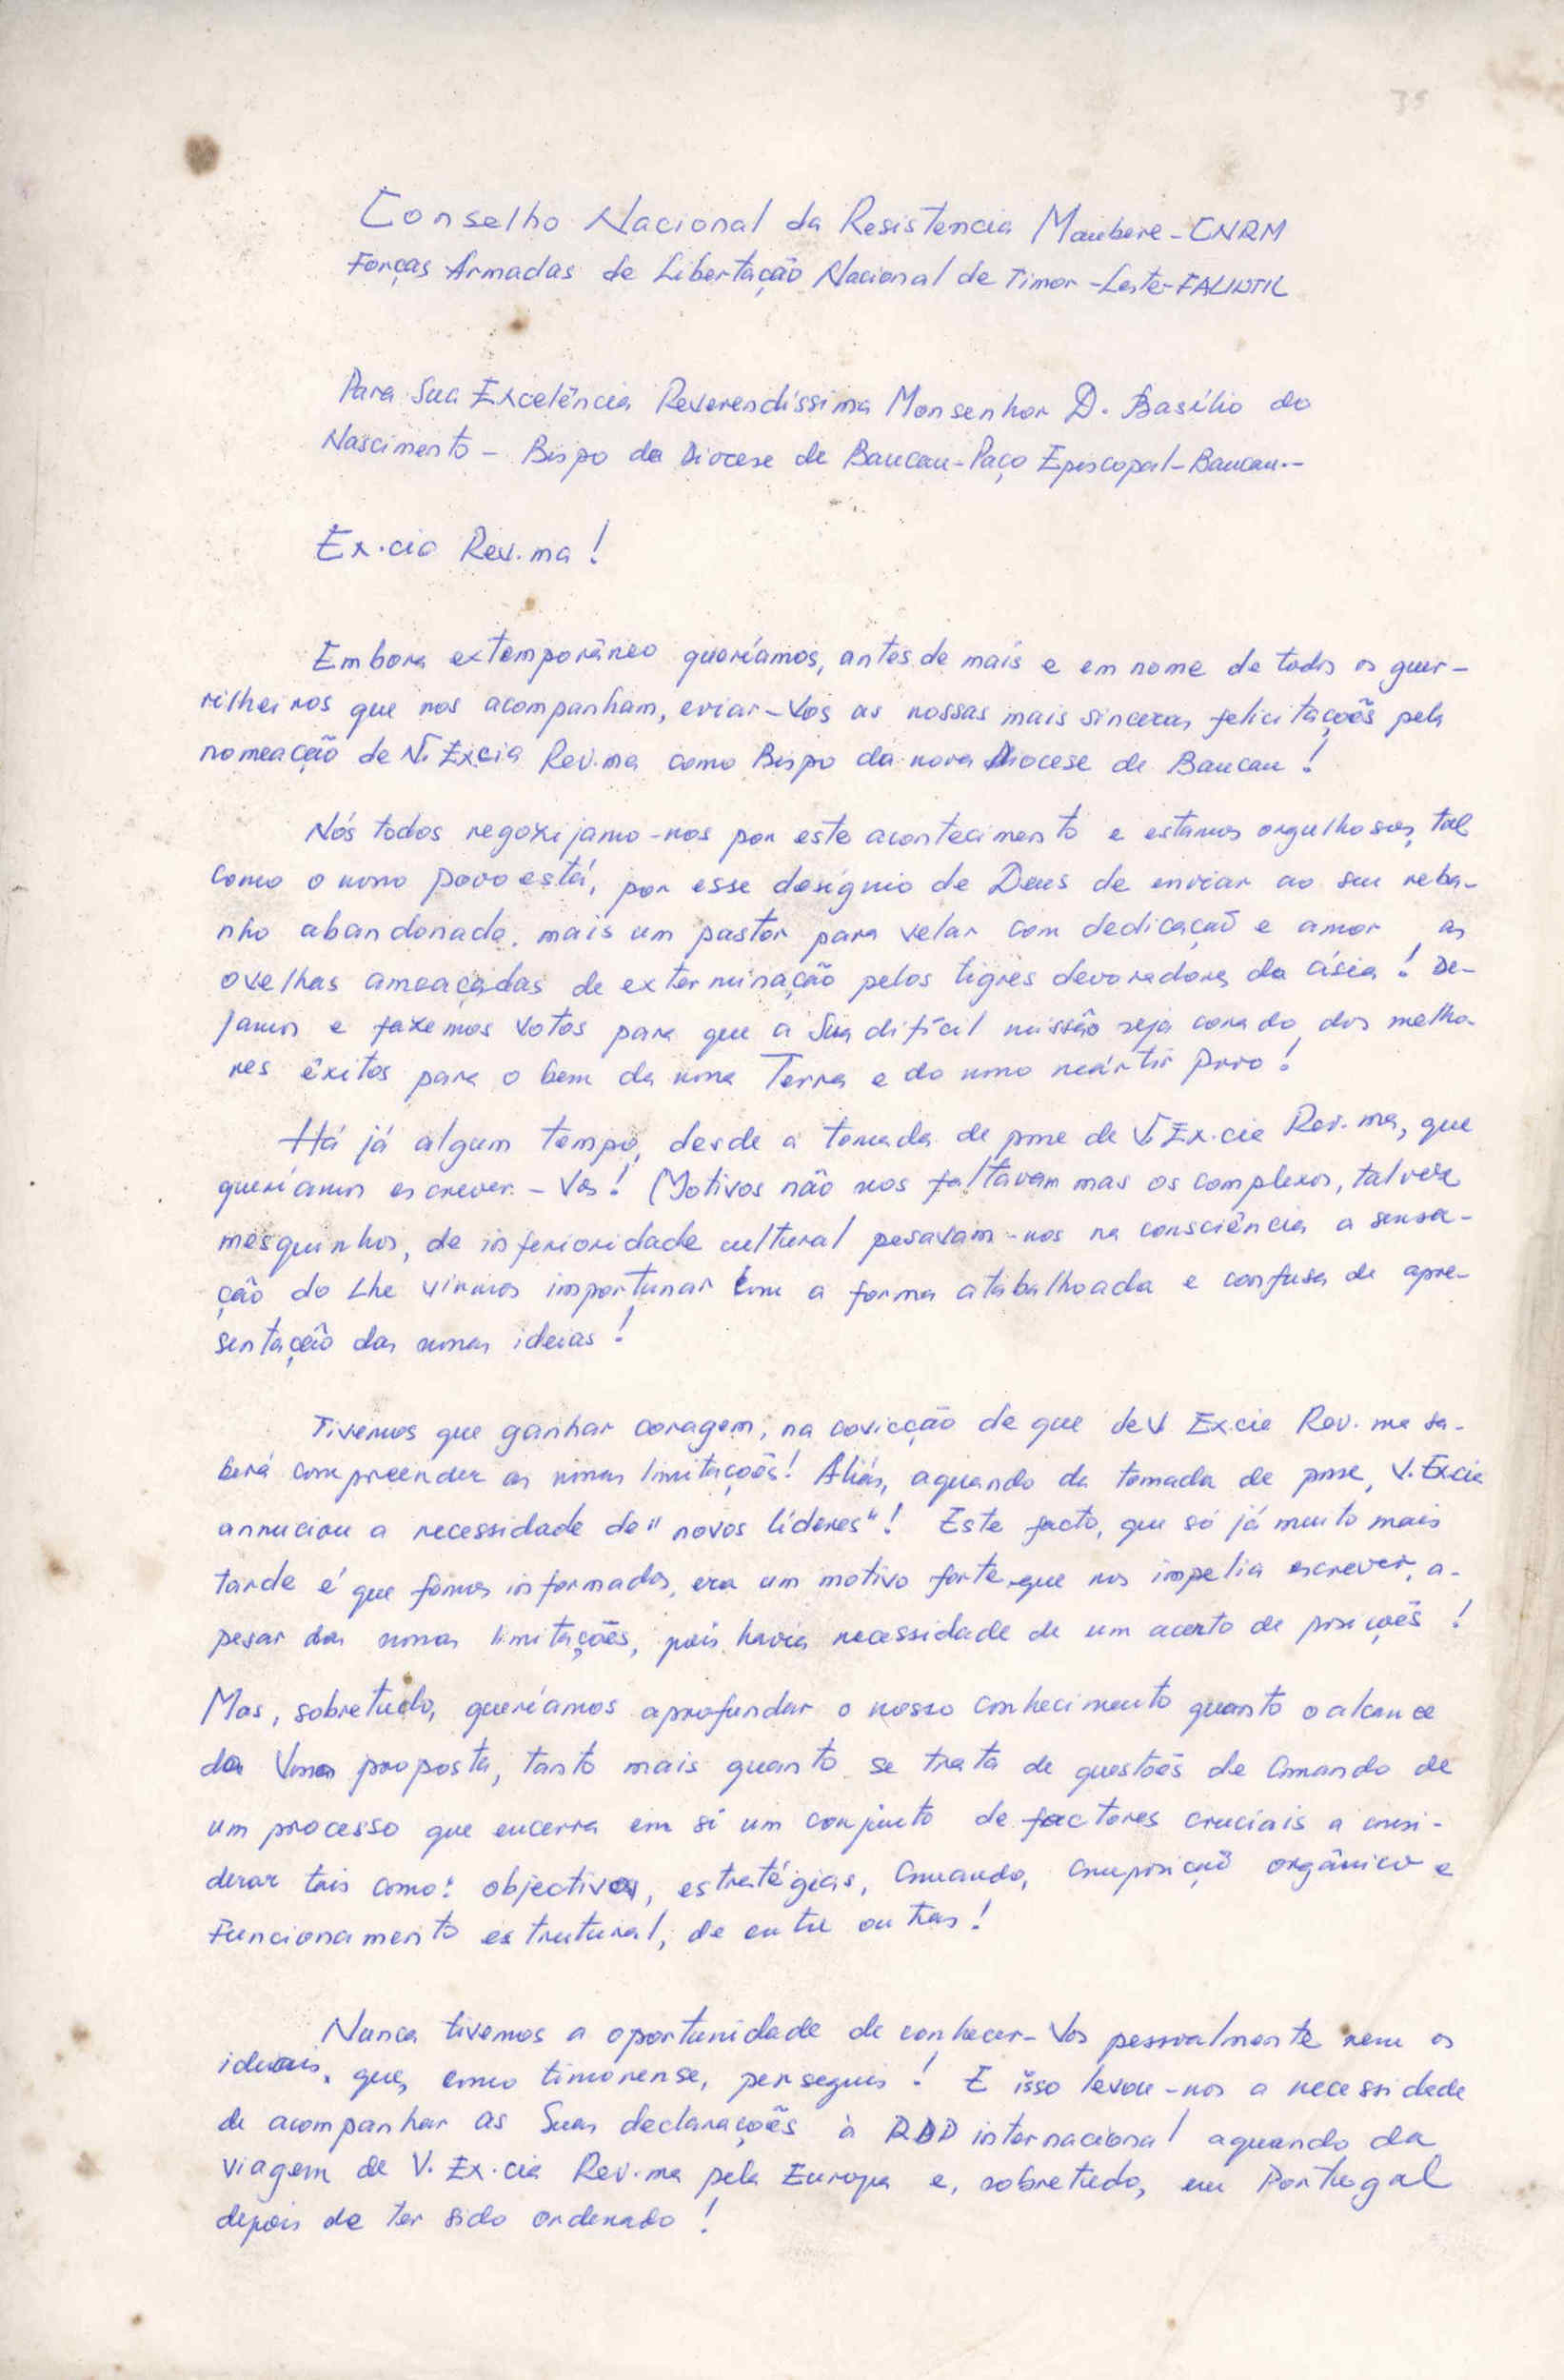 35
Conselho Nacional da Resistencia Maubere - CNRM
Forças Armadas de Libertação Nacional de Timor-Leste-FALINTIL
Para Sua Excelência Reverendíssima Monsenhor D. Basílio do
Nascimento - Bispo da Diocese de Baucau-Paço Episcopal-Baucau.-
Ex.cia Rev.ma!
Embora extemporâneo queríamos, antes de mais e em nome de todos os guer-
rilheiros que nos acompanham, eviar-Vos as nossas mais sinceras felicitações pela
nomeação de V. Excia Rev.ma como Bispo da nova Diocese de Baucau!
Nós todos regozijamo-nos por este acontecimento e estamos orgulhosos, tal
como o nosso povo está, por esse desígnio de Deus de enviar ao seu reba-
nho abandonado, mais um pastor para velar com dedicação e amor as
ovelhas ameaçadas de exterminação pelos tigres devoradores da ásia! De-
jamos e fazemos votos para que a Sua difícil missão seja coroado dos melho-
res êxitos para o bem da nossa Terra e do nosso mártir Povo!
Há já algum tempo, desde a tomada de posse de V. Ex.cia Rev.ma, que
queríamos escrever-Vos! Motivos não nos faltavam mas os complexos, talvez
mesquinhos, de inferioridade cultural pesavam-nos na consciência a sensa-
ção do Lhe virmos importunar com a forma atabalhoada e confusa de apre-
sentação das nossas ideias!
Tivemos que ganhar coragem, na covicção de que de V Ex.cia Rev.ma sa-
berá compreender as nossas limitações! Aliás, aquando da tomada de posse, V. Excia
annuciou a necessidade de "novos líderes"! Este facto, que só já muito mais
tarde é que fomos informados, era um motivo forte que nos impelia escrever, a-
pesar das nossas limitações, pois havia necessidade de um acerto de posições!
Mas, sobretudo, queríamos aprofundar o nosso conhecimento quanto o alcance
da Vossa proposta, tanto mais quanto se trata de questões de Comando de
um processo que encerra em si um conjunto de factores cruciais a consi-
derar tais como: objectivos, estratégias, Comando, composição orgânico e
Funcionamento estrutural, de entre outras!
Nunca tivemos a oportunidade de conhecer-Vos pessoalmente nem os
ideais, que, como timorense, perseguis! E isso levou-nos a necessidade
de acompanhar as Suas declarações à RDP internacional aquando da
viagem de V. Ex.cia Rev.ma pela Europa e, sobretudo, em Portugal
depois de ter sido ordenado!